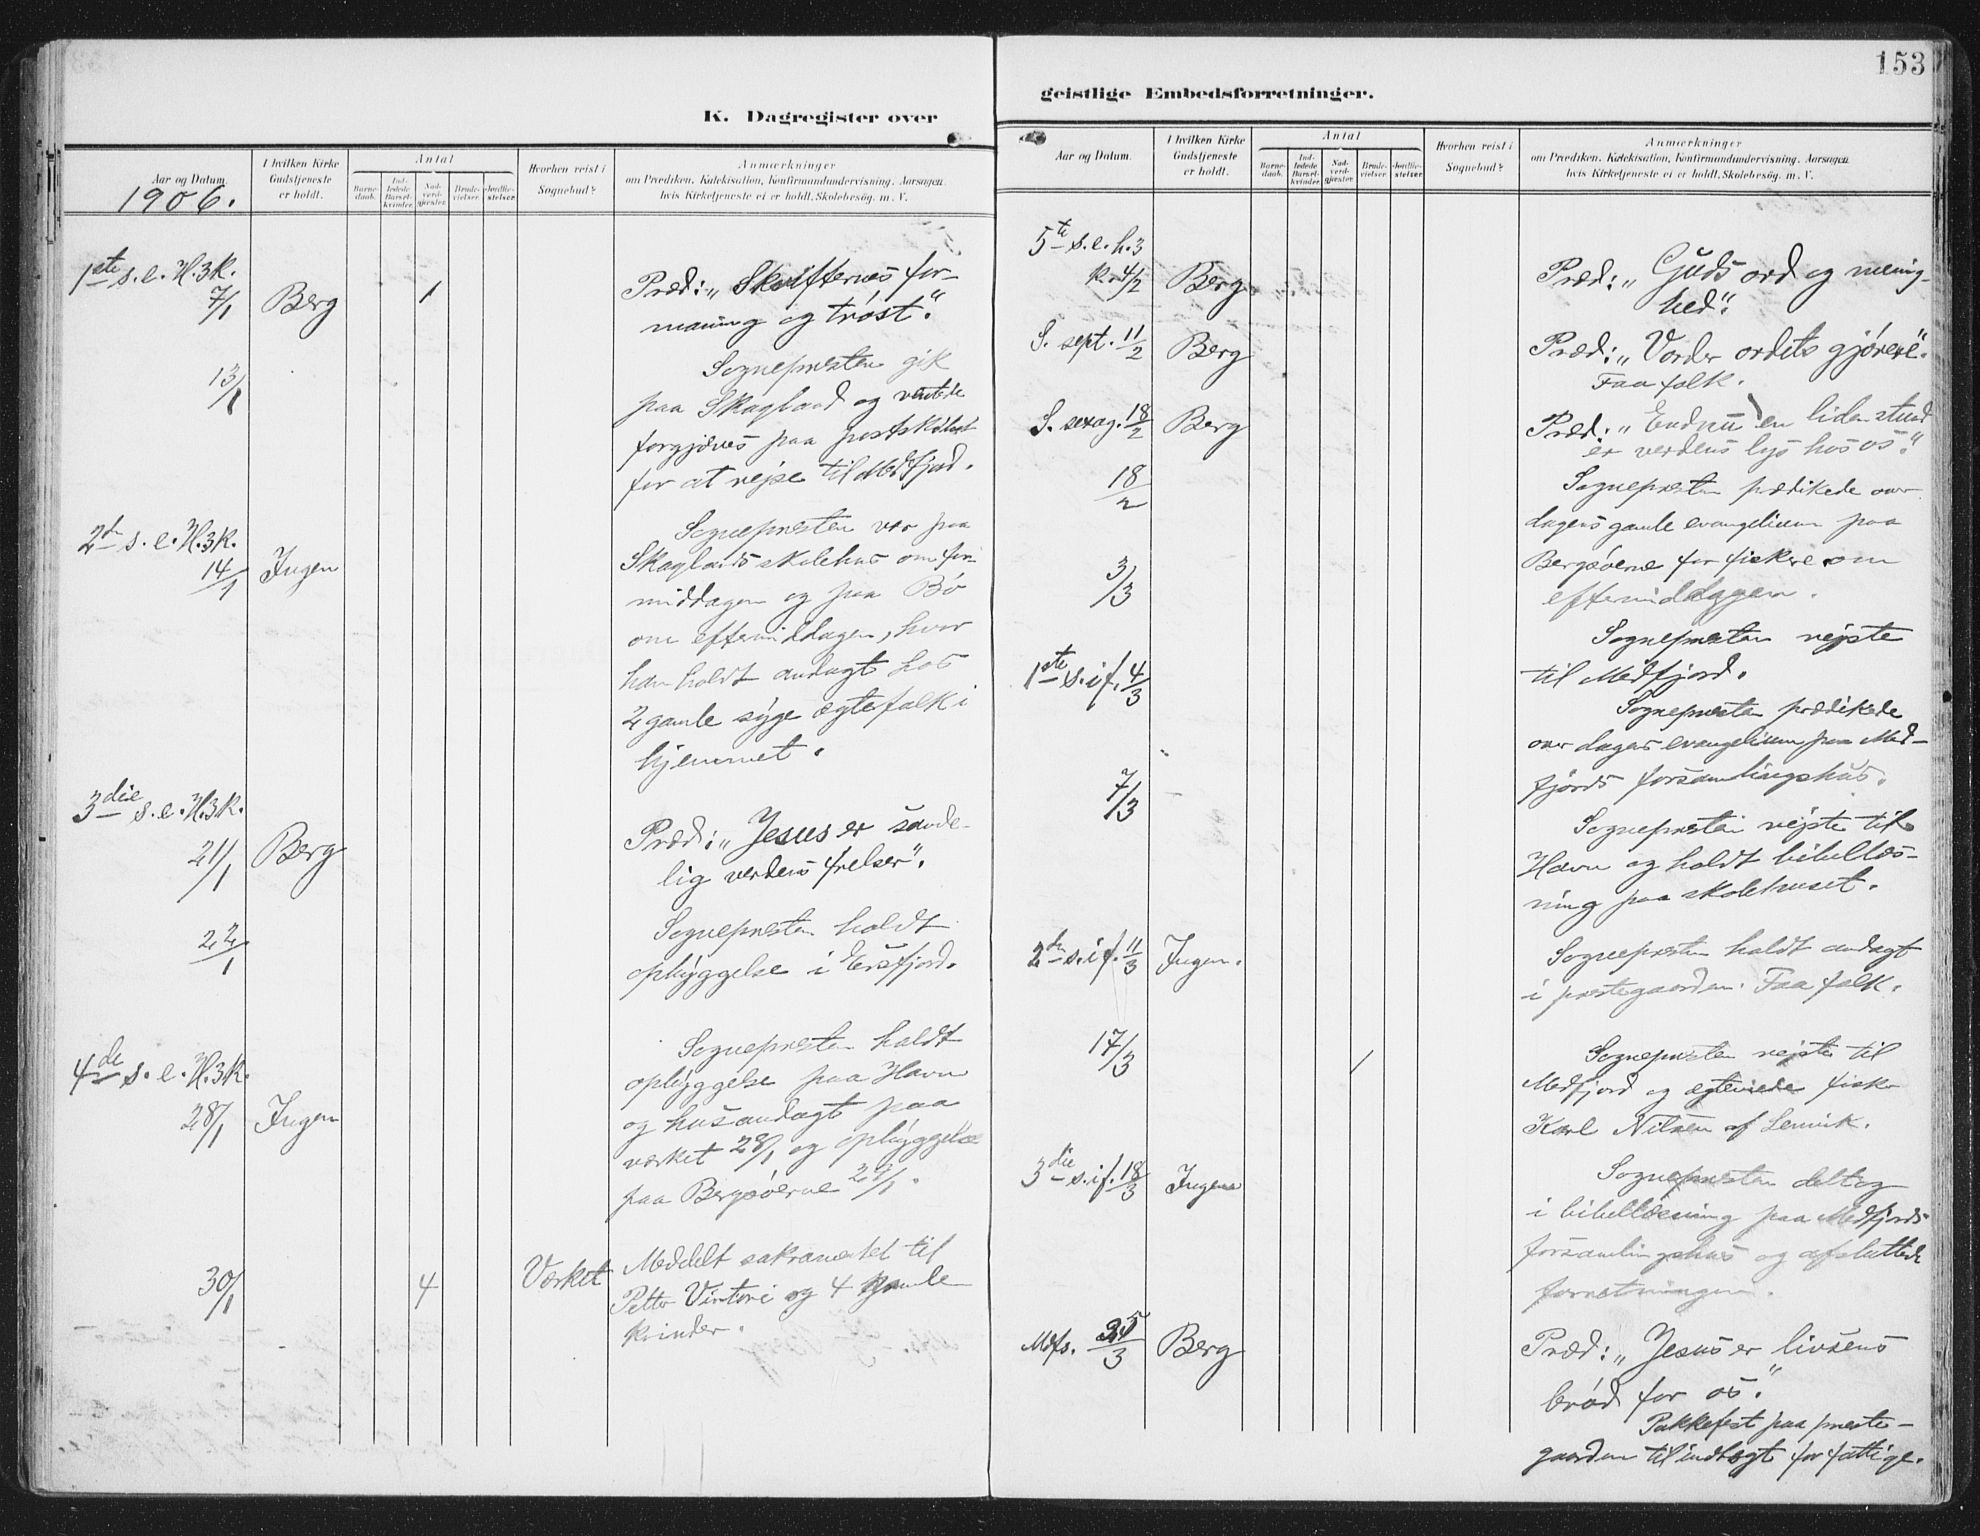 K. Dagregister over
Aar og Datum.
1906.
I hvilken Kirke Gudstjeneste er holdt.
Antal
Barne-daab.
Ind-ledede Barsel-kvinder.
Nad-verd-gjæster.
Brude-vielser.
Jordfæ-stelser.
Hvorhen reist i Sognebud?
Anmærkninger
om Prædiken, Katekisation, Konfirmandundervisning, Aarsagen
hvis Kirketjeneste ei er holdt, Skolebesøg, m. V.
1ste s. e. H.3K.
7/1 Berg 1 Præd: „Skrifternes for-
maning og trøst."
13/1 Sognepresten gik
paa Skagland og ventede
forgjæves paa postskøitet
for at rejse til Medfjord.
2den s. e. H.3K.
14/1 Ingen Sognepresten var paa
Skaglands skolehus om for-
middagen og paa Bø
om eftermiddagen, hvor
han holdt andagt hos
2 gamle syge egtefolk i
hjemmet.
3die s. e. H.3K.
21/1 Berg Præd: „Jesus er sande-
lig verdens frelser".
22/1 Sognepresten holdt
opbyggelse i Ersfjord.
4de s. e. H.3K.
28/1 Ingen Sognepresten holdt
opbyggelse paa Havn
og husandagt paa
værket 28/1 og opbyggelse
paa Bergsøerne 29/1.
30/1 4 Værket Meddelt sakramentet til
Petter og 4 gamle
kvinder.
153
geistlige Embedsforretninger.
Aar og Datum.
I hvilken Kirke Gudstjeneste er holdt.
Antal
Barne-daab.
Ind-ledede Barsel-kvinder.
Nad-verd-gjæster.
Brude-vielser.
Jordfæ-stelser.
Hvorhen reist i Sognebud?
Anmærkninger
om Prædiken, Katekisation, Konfirmandundervisning, Aarsagen
hvis Kirketjeneste ei er holdt, Skolebesøg, m. V.
5te s. e. h.3
K. 4/2 Berg Præd: „Guds ord og menig-
hed".
S. sept. 11/2 Berg Præd: „Vorder ordets gjørere".
Faa folk.
S. sexag. 18/2 Berg Præd: „Endnu en liden stund
er verdens lys hos os."
18/2 Sognepresten prædikede over
dagens gamle evangelium paa
Bergsøerne for fiskere om
eftermiddagen.
3/3 Sognepresten rejste
til Medfjord.
1ste s. i f. 4/3 Sognepresten prædikede
over dagens evangelium paa Med-
fjords forsamlingshus.
7/3 Sognepresten rejste til
Havn og holdt bibellæs-
ning paa skolehuset.
2den s. i f. 11/3 Ingen. Sognepresten holdt andagt
i prestegaarden. Faa folk.
17/3 1 Sognepresten rejste til
Medfjord og egteviede fisker
Karl Nilsen af Lenvik.
3die s. i f. 18/3 Ingen Sognepresten deltog
i bibellæsning paa Medfjords
forsamlingshus og afsluttede
forretningen.
Mfs. 25/3 Berg Præd: „Jesus er livsens
brød for os."
Pakkefest paa preste-
gaarden til indtægt for fattige.